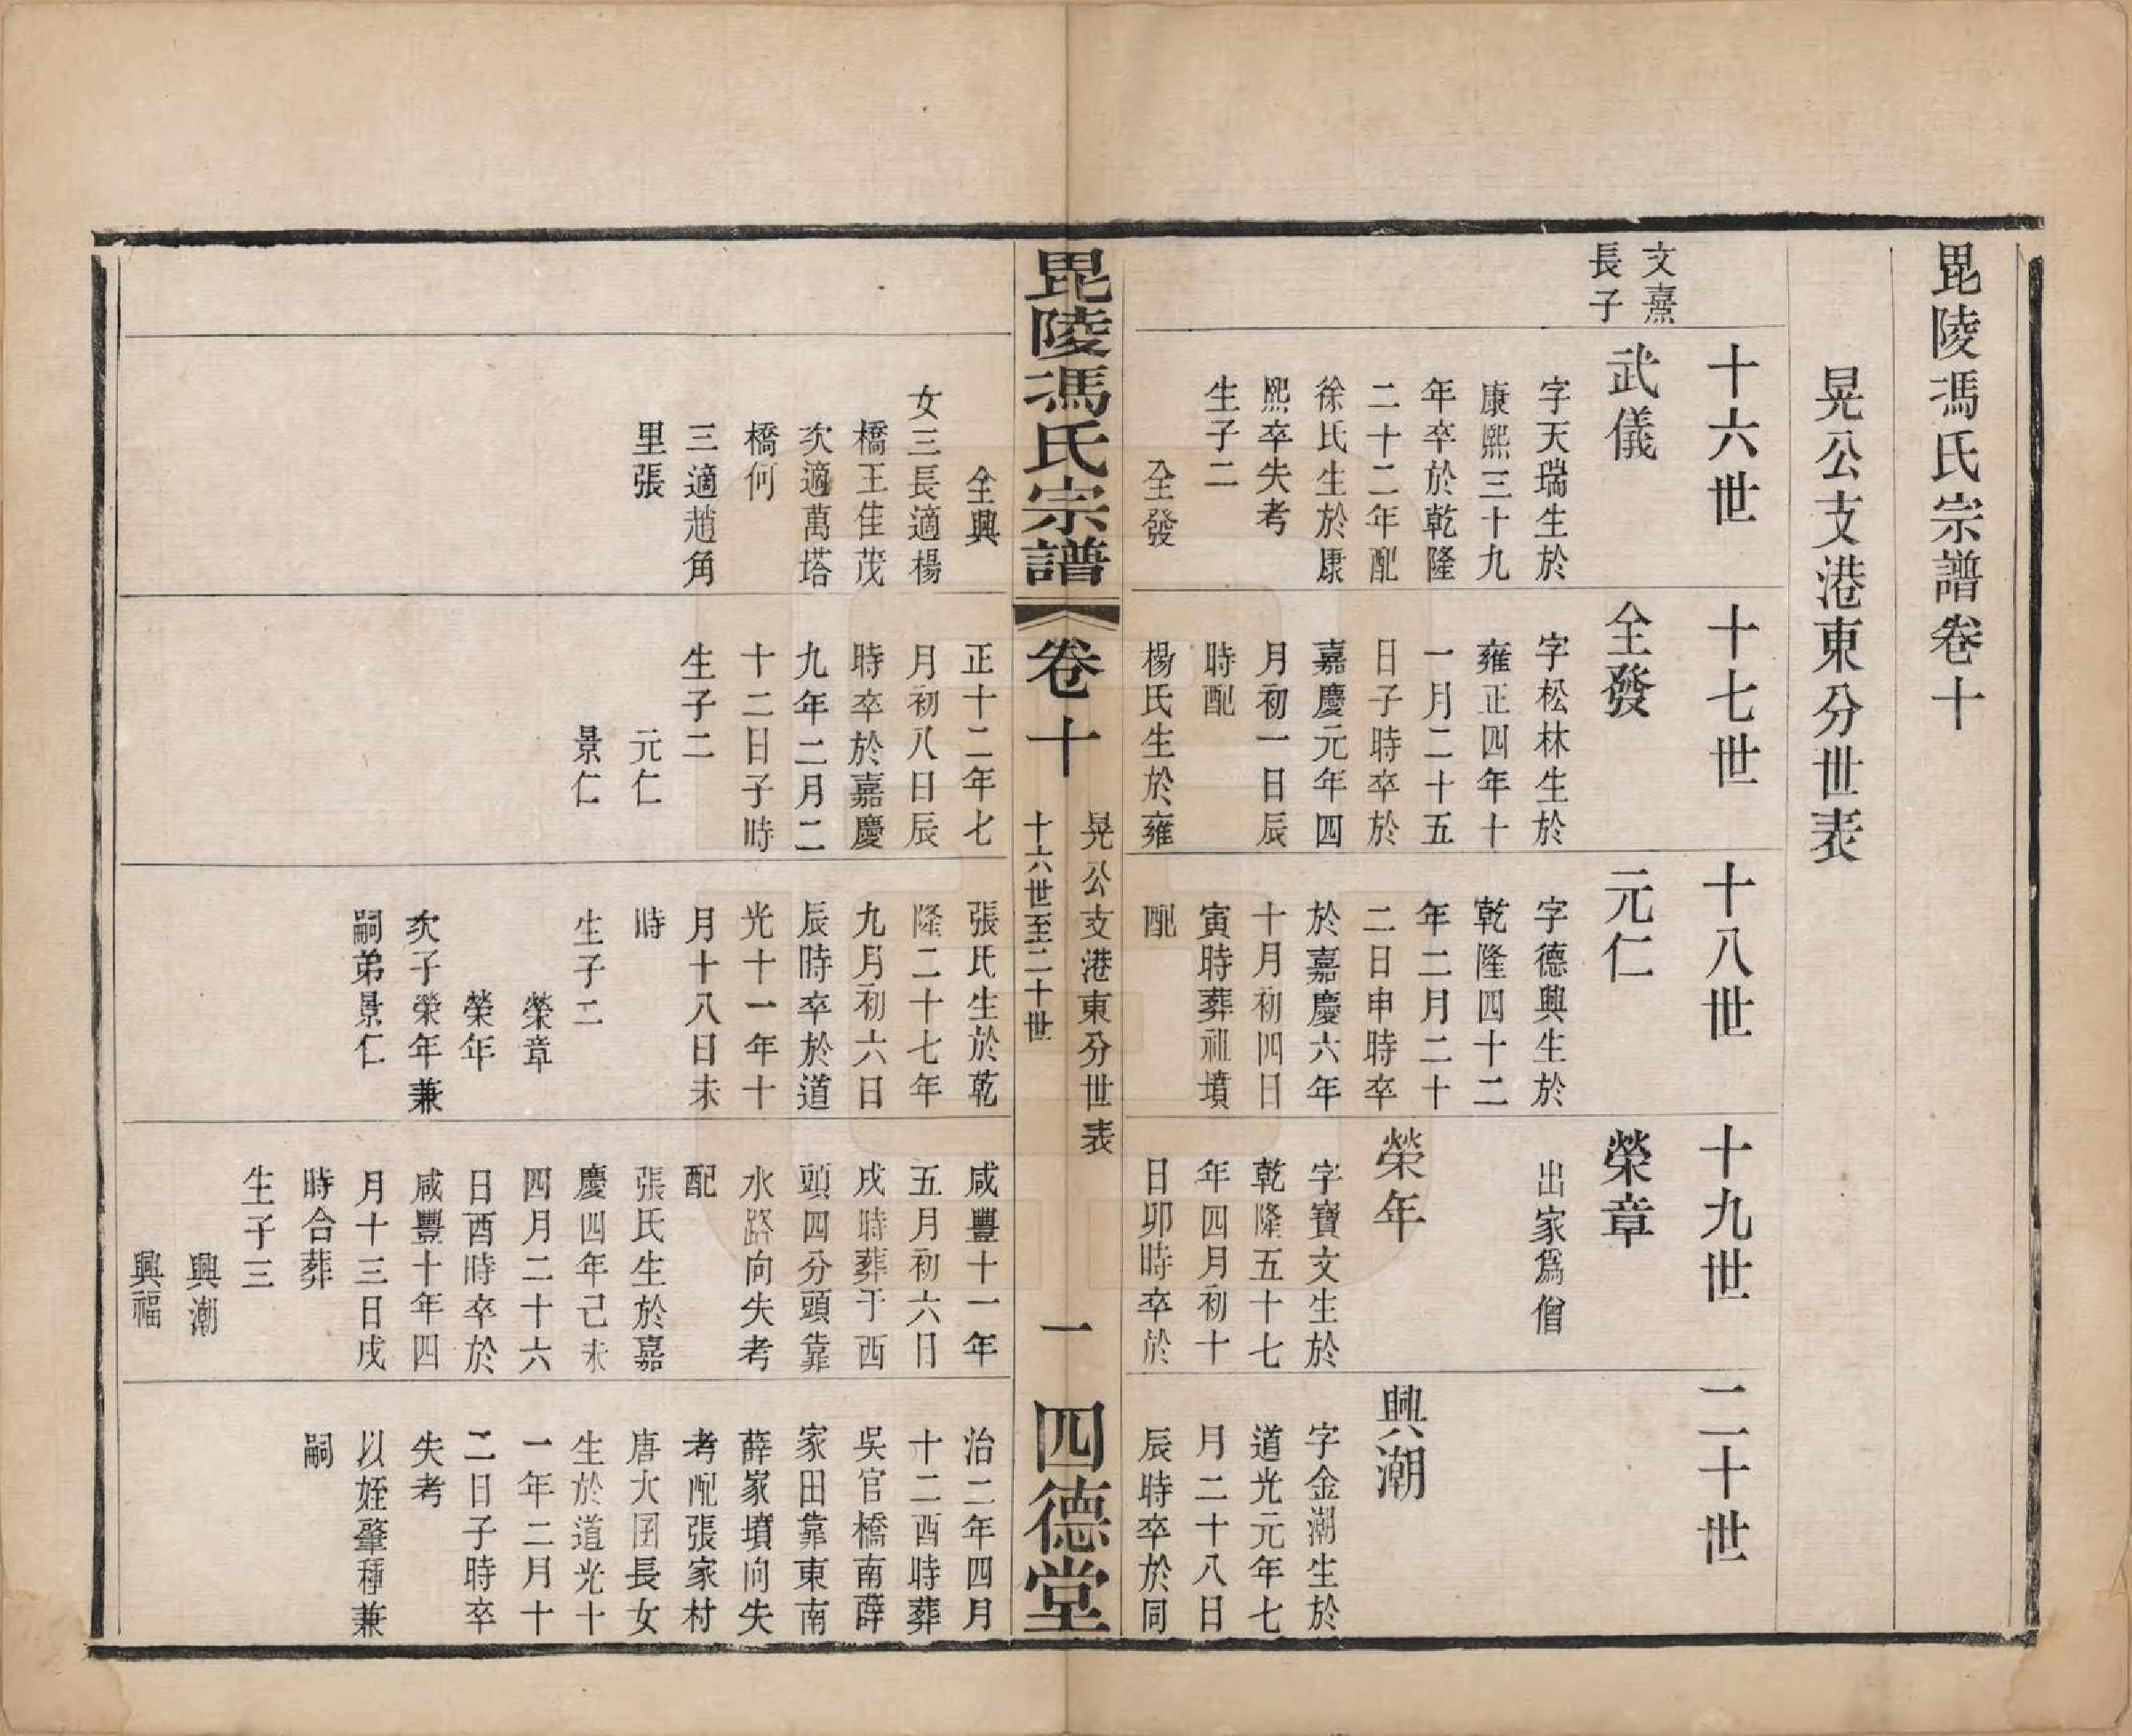 毘陵馮氏宗譜卷十
晃公支港東分世表
十六世
文熹
長子
武儀
字天瑞生於
康熙三十九
年卒於乾隆
二十二年配
徐氏生於康
熙卒失考
生子二
全發
全興
女三長適楊
橋王佳茂
次適萬塔
橋何
三適趙角
里張
十七世
全發
字松林生於
雍正四年十
一月二十五
日子時卒於
嘉慶元年四
月初一日辰
時配
楊氏生於雍
正十二年七
月初八日辰
時卒於嘉慶
九年二月二
十二日子時
生子二
元仁
景仁
十八世
元仁
字德興生於
乾隆四十二
年二月二十
二日申時卒
於嘉慶六年
十月初四日
寅時葬祖墳
配
張氏生於乾
隆二十七年
九月初六日
辰時卒於道
光十一年十
月十八日未
時
生子二
榮章
榮年
次子榮年兼
嗣弟景仁
十九世
榮章
出家爲僧
榮年
字寶文生於
乾隆五十七
年四月初十
日卯時卒於
咸豐十一年
五月初六日
戌時葬于西
頭四分頭靠
水路向失考
配
張氏生於嘉
慶四年己未
四月二十六
日酉時卒於
咸豐十年四
月十三日戌
時合葬
生子三
興潮
興福
二十世
興潮
字金潮生於
道光元年七
月二十八日
辰時卒於同
治二年四月
十二酉時葬
吳官橋南薛
家田靠東南
薛家墳向失
考配張家村
唐大囝長女
生於道光十
一年二月十
二日子時卒
失考
以姪肇種兼
嗣
毘陵馮氏宗譜
卷十
晃公支港東分世表
十六世至二十世
一
四德堂